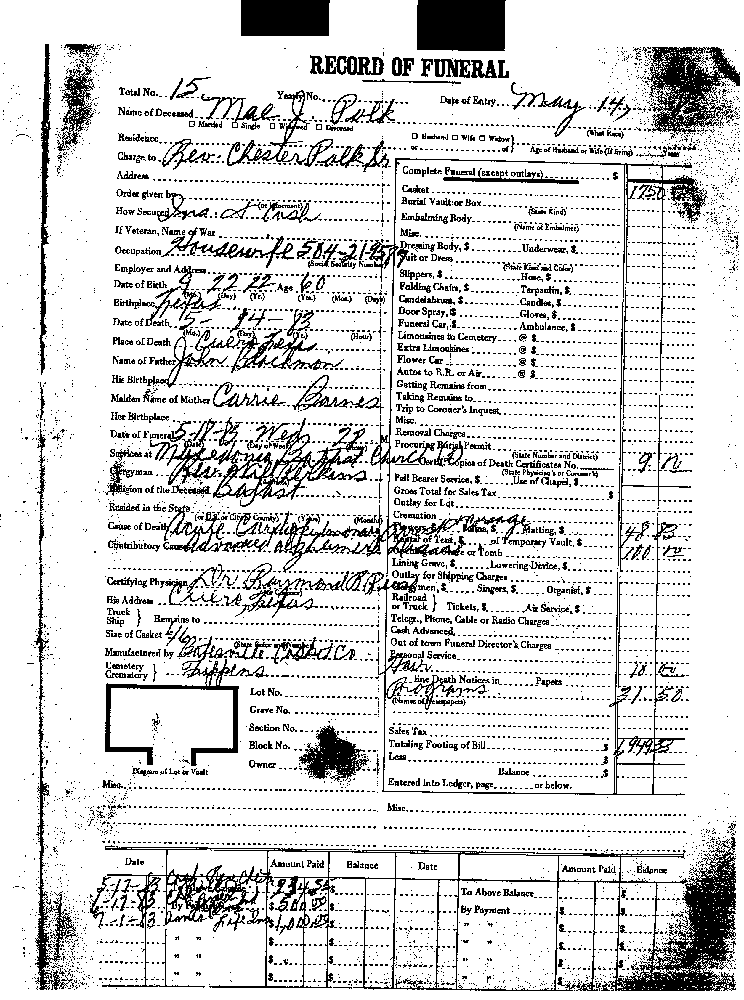 RECORD OF FUNERAL
Total No. 15 Yearly No. Date of Entry May 14,
Name of Deceased Mae J. Polk
☐ Married ☐ Single ☐ Widowed ☐ Divorced (What Race)
Residence ☐ Husband ☐ Wife ☐ Widow
or of Age of Husband or Wife (if living) Years
Charge to Rev. Chester Polk Sr
Address
Order given by
How Secured (or informant)
If Veteran, Name of War
Occupation Housewife
(Social Security Number)
Employer and Address
Date of Birth 9 22 22 Age 60
(Mo.) (Day) (Yr.) (Yrs.) (Mos.) (Days)
Birthplace Texas
Date of Death 5 - 14 - 83
(Mo.) (Day) (Yr.) (Hour)
Place of Death Cuero Texas
Name of Father John Blackmon
His Birthplace
Maiden Name of Mother Carrie Barnes
Her Birthplace
Date of Funeral 5-18-83 Wed.
(Date) (Day of Week)
Services at Macedonia Baptist Church
Clergyman Rev.
Religion of the Deceased Baptist
Resided in the State
(or U.S. or City or County) (Years) (Months)
Cause of Death Acute Cardiopulmonary
Contributory Cause Advanced Alzheimers Disease
Certifying Physician Dr. Raymond R. Reese
His Address Cuero Texas
Truck
Ship } Remains to
Size of Casket 6/6
(State Color or Number)
Manufactured by Gatesville Casket Co
Cemetery
Crematory }
Lot No.
Grave No.
Section No.
Block No.
Owner
Diagram of Lot or Vault
Complete Funeral (except outlays) $
Casket 1750
Burial Vault or Box
(State Kind)
Embalming Body
(Name of Embalmer)
Misc.
Dressing Body, $ Underwear, $
Suit or Dress
(State Kind and Color)
Slippers, $ Hose, $
Folding Chairs, $ Tarpaulin, $
Candelabrum, $ Candles, $
Door Spray, $ Gloves, $
Funeral Car, $ Ambulance, $
Limousines to Cemetery @ $
Extra Limousines @ $
Flower Car @ $
Autos to R.R. or Air @ $
Getting Remains from
Taking Remains to
Trip to Coroner's Inquest
Misc.
Removal Charges
Procuring Burial Permit
(State Number and District)
Certif. Copies of Death Certificates No. 9 00
(State Physician's or Coroner's)
Pall Bearer Service, $ Use of Chapel, $
Gross Total for Sales Tax $
Outlay for Lot
Cremation
Flowers, $ Palms, $ Matting, $ 48 83
Rental of Tent, $ of Temporary Vault, $ 100 00
Lining Grave, $ Lowering Device, $
Outlay for Shipping Charges
Clergymen, $ Singers, $ Organist, $
Railroad
or Truck } Tickets, $ Air Service, $
Telegr., Phone, Cable or Radio Charges
Cash Advanced
Out of town Funeral Director's Charges
Personal Service
Hair 10 00
line Death Notices in Papers
Programs 31 50
(Names of Newspapers)
Sales Tax
Totaling Footing of Bill $ 1,949 33
Less $
Balance $
Entered into Ledger, page or below.
Misc. Misc.
Date Amount Paid Balance Date Amount Paid Balance
5-17-83 $934.55 $ To Above Balance $
$500.00 $ By Payment $ $
7-1-83 $1,000.00 $ " " $ $
" " $ $ " " $ $
" " $ $ " " $ $
" " $ $ " " $ $